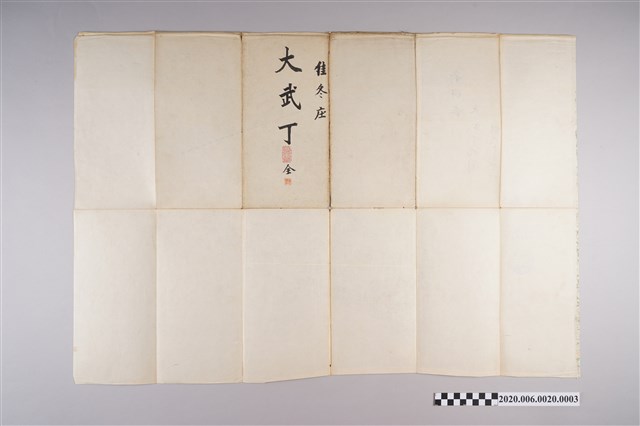 佳冬庄
大武丁
全
2020.006.0020.0003